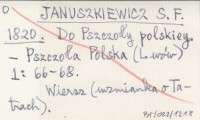 0 JANUSZKIEWICZ S. F.
1820. Do Pszczoły polskiej.
– Pszczoła Polska (Lwów)
1: 66-68.
Wiersz (wzmianka o Ta-
trach).